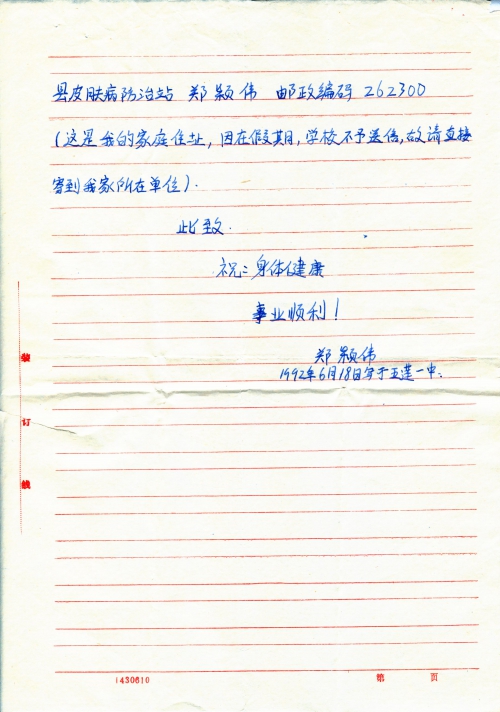 县皮肤病防治站 郑颖伟 邮政编码 262300
(这是我的家庭住址,因在假期,学校不予送信,故请直接
寄到我家所在单位).
此致.
祝:身体健康
事业顺利!
郑颖伟
1992年6月18日写于五莲一中.
装
订
线
1430610
第 页